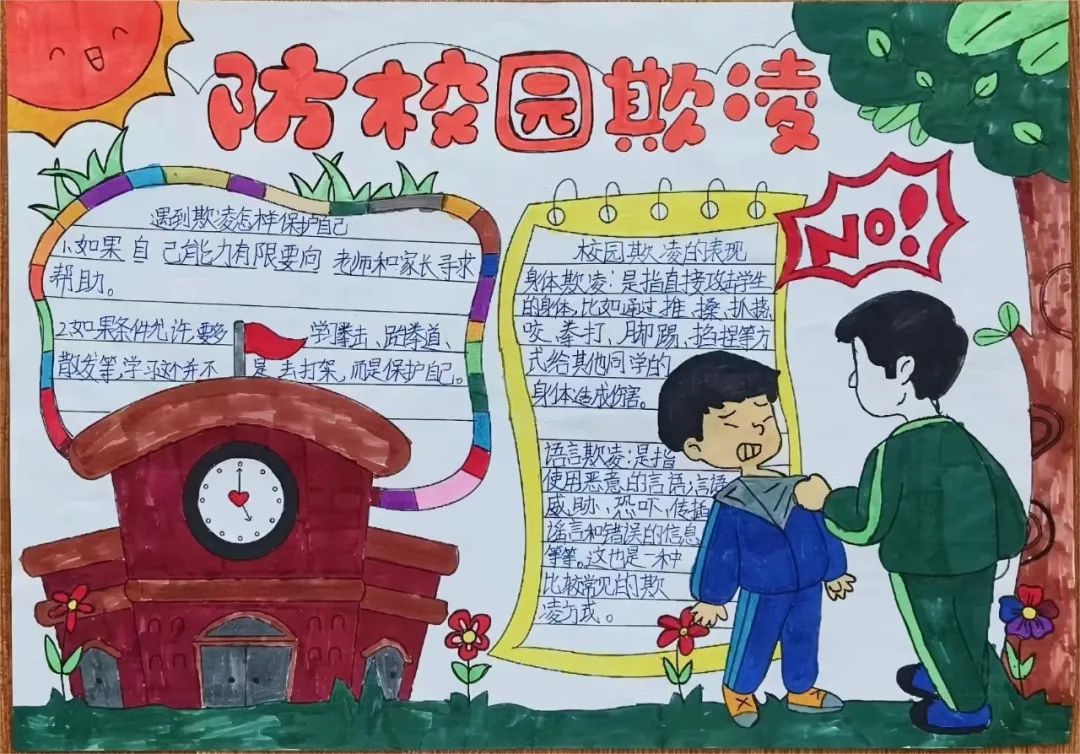 防校园欺凌
遇到欺凌怎样保护自己
1.如果自己能力有限要向老师和家长寻求
帮助。
2.如果条件允许,要多学习拳击、跆拳道、
散发等,学习这个并不是去打架,而是保护自己。
NO!
校园欺凌的表现
身体欺凌:是指直接攻击学生
的身体,比如通过推、搡、抓挠、
咬、拳打、脚踢、掐捏等方
式给其他同学的
身体造成伤害。
语言欺凌:是指
使用恶意的言语,言语
威胁、恐吓、传播
谣言和错误的信息
等等。这也是一种
比较常见的欺
凌方式。